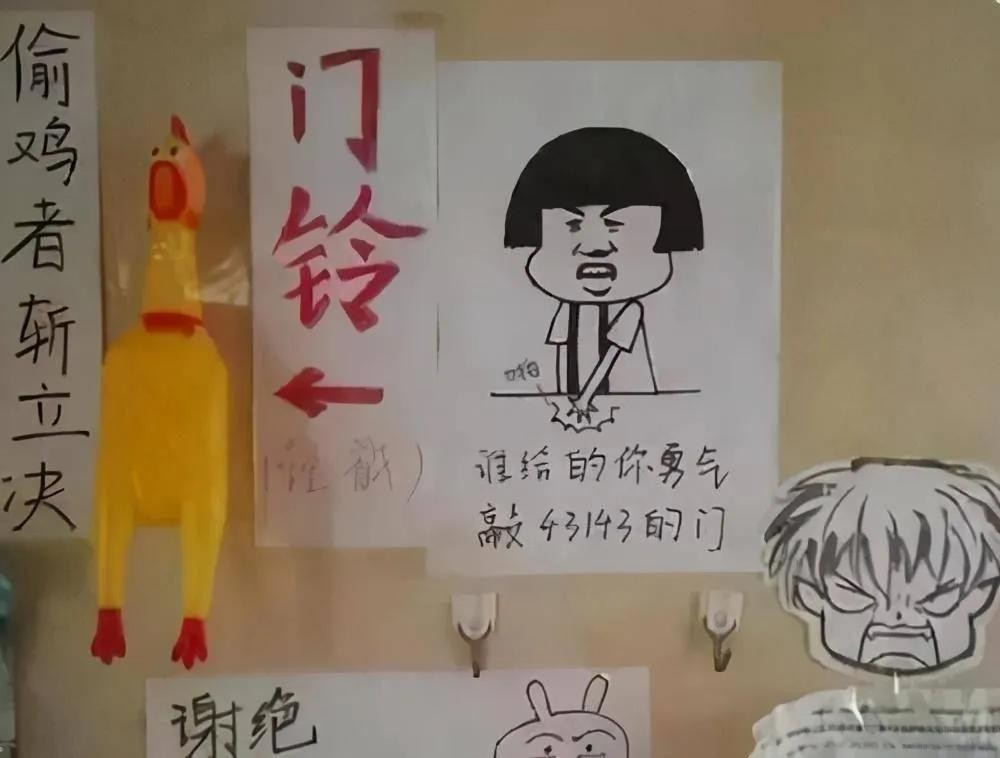 偷鸡者斩立决
门铃
谁给的你勇气
敲43143的门
谢绝